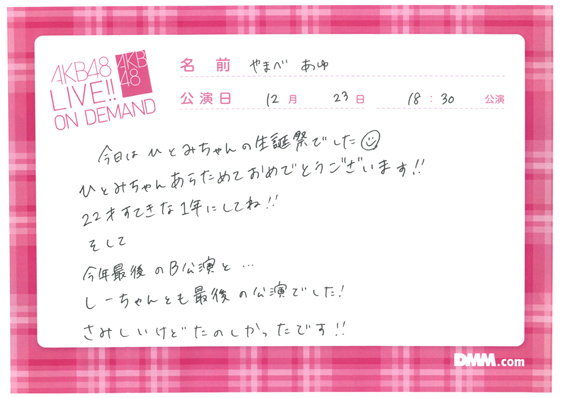 AKB48
LIVE!!
ON DEMAND
AKB
48
名前 やまべ あゆ
公演日 12月 23日 18:30 公演
今日はひとみちゃんの生誕祭でした
ひとみちゃんあらためておめでとうございます!!
22才すてきな1年にしてね!!
そして
今年最後のB公演と…
しーちゃんとも最後の公演でした!
さみしいけどたのしかったです!!
DMM.com